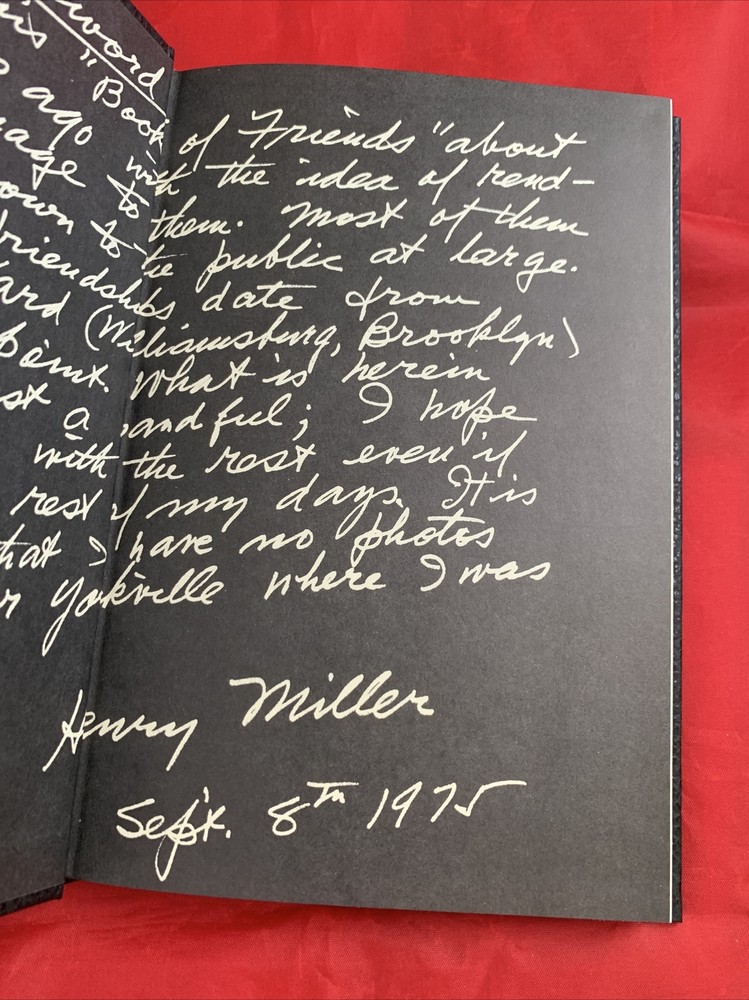 word
is "Book of Friends" about
ago with the idea of rend-
age to them. Most of them
own to the public at large.
riendships date from
ard (Williamsburg, Brooklyn)
point. What is herein
st a handful; I hope
with the rest even if
rest of my days. It is
hat I have no photos
r Yorkville where I was
Henry Miller
Sept. 8th 1975